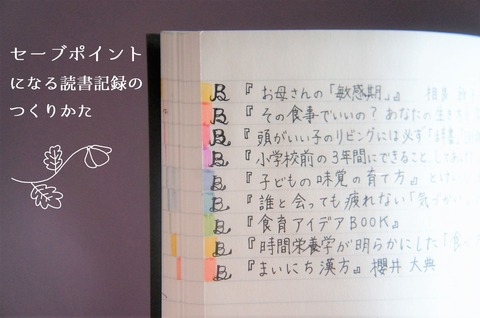 セーブポイント
になる読書記録の
つくりかた
B 『お母さんの「敏感期」』
B 『その食事でいいの？あなたの生き
B 『頭がいい子のリビングには必ず「辞書」
B 『小学校前の3年間にできること、して
B 『子どもの味覚の育て方』
B 『誰と会っても疲れない「気づかい」
B 『食育アイデアBOOK』
B 『時間栄養学が明らかにした「食
B 『まいにち漢方』櫻井 大典